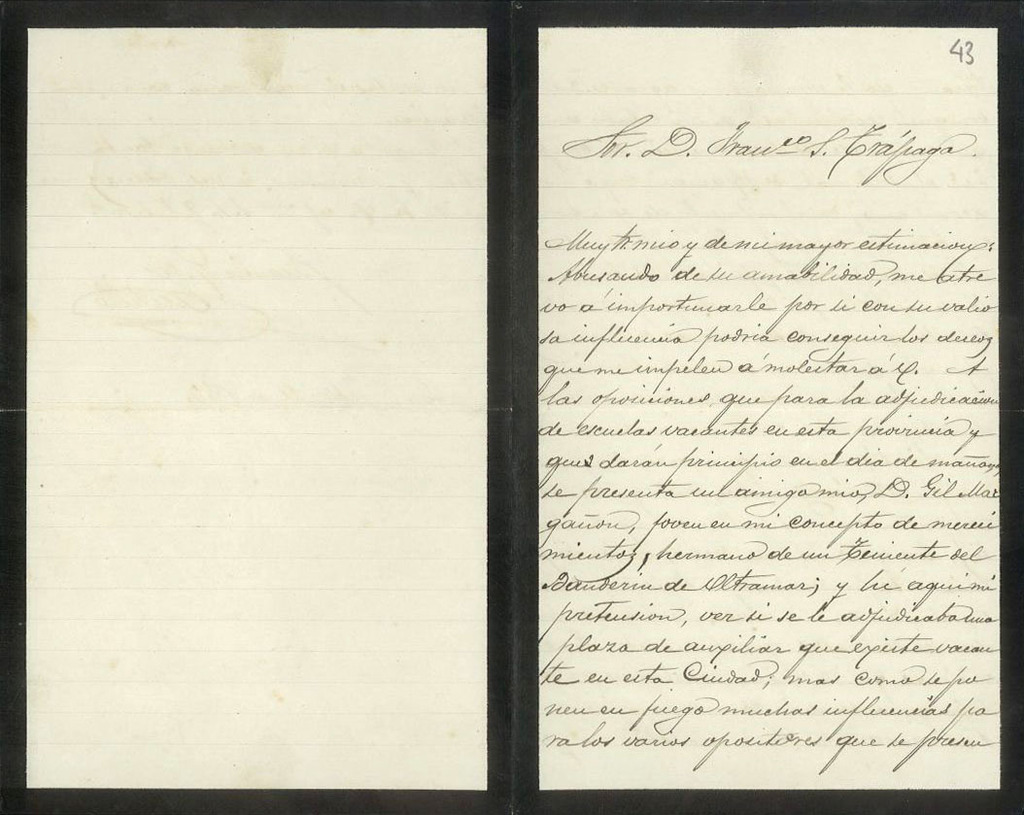 43
Sor. D. Franco S. Trápaga.
Muy Sr mio y de mi mayor estimacion:
Abusando de su amabilidad, me atre
vo á importunarle por si con su valio
sa influencia podria conseguir los deseos
que me impelen á molestar á V. A
las oposiciones que para la adjudicacion
de escuelas vacantes en esta provincia y
que darán principio en el dia de mañana,
se presenta un amigo mio, D. Gil Mar
gañon, joven en mi concepto de mereci
mientos, hermano de un Teniente del
Banderin de Ultramar; y hé aqui mi
pretension, ver si se le adjudicaba una
plaza de auxiliar que existe vacan
te en esta Ciudad; mas como se po
nen en juego muchas influencias pa
ra los varios opositores que se presen